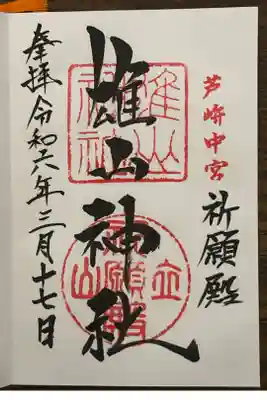 芦峅中宮
祈願殿
雄山神社
雄山
神社
立山
祈願殿
奉拝 令和六年三月十七日